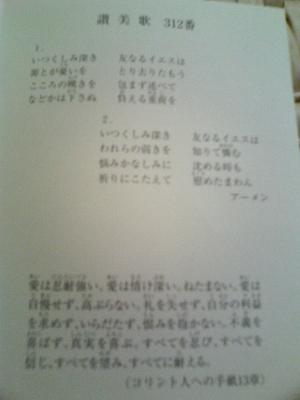 讃美歌 312番
1.
いつくしみ深き 友なるイエスは
罪とが憂いを とり去りたもう
こころの嘆きを 包まず述べて
などかは下さぬ 負える重荷を
2.
いつくしみ深き 友なるイエスは
われらの弱きを 知りて憐む
悩みかなしみに 沈める時も
祈りにこたえて 慰めたまわん
アーメン
愛は忍耐強い。愛は情け深い。ねたまない。愛は
自慢せず、高ぶらない。礼を失せず、自分の利益
を求めず、いらだたず、恨みを抱かない。不義を
喜ばず、真実を喜ぶ。すべてを忍び、すべてを
信じ、すべてを望み、すべてに耐える。
(コリント人への手紙13章)